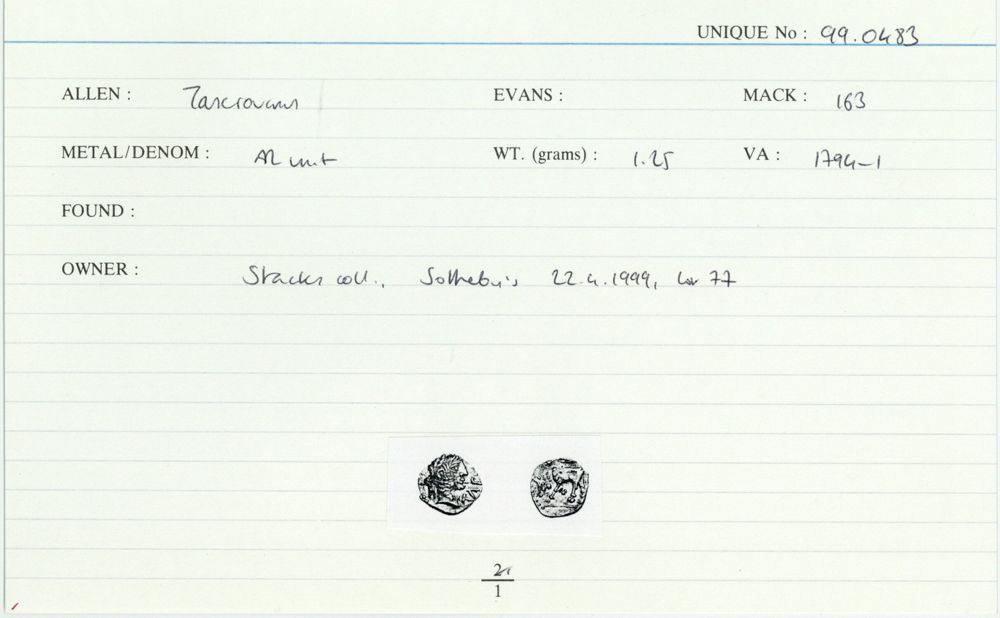 UNIQUE No : 99.0483
ALLEN : Tasciovanus EVANS : MACK : 163
METAL/DENOM : AR unit WT. (grams) : 1.25 VA : 1794-1
FOUND :
OWNER : Stacks coll., Sotheby's 22.4.1999, lot 77
2
1